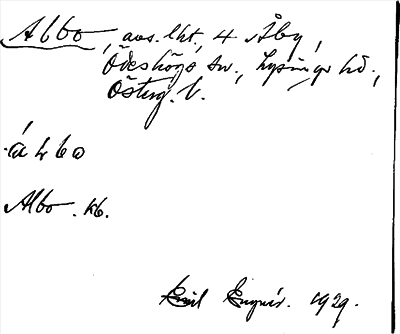 Albo, avs. lht, 4 Åby,
Ödeshögs sn., Lysings hd.,
Österg. l.
Albo. kb.
Emil Engvér. 1929.